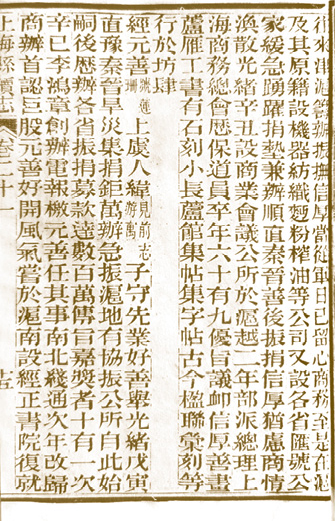 行來滬派辦撫信厚嘗從軍日已留心商務至是在滬
及其原籍設機器紡織麵粉榨油等公司又設各省匯號公
家緩急踴躍捐墊兼辦順直秦晉善後振捐信厚猶慮商情
渙散光緒辛丑設商業會議公所於滬越二年部派總理上
海商務總會應保道員卒年六十有九優旨議卹信厚善畫
蘆雁工書有石刻小長蘆館集帖集字帖古今楹聯彙刻等
行於坊肆
經元善號蓮珊上虞人緯見前志游寓子守先業好善舉光緒戊寅
直豫秦晉旱災集捐鉅萬辦急振滬地有協振公所自此始
嗣後歷辦各省振捐募款達數百萬傳旨嘉獎者十有一次
辛巳李鴻章創辦電報檄元善任其事南北綫通次年改歸
商辦首認巨股元善好開風氣嘗於滬南設經正書院復就
上海縣續志 卷二十一